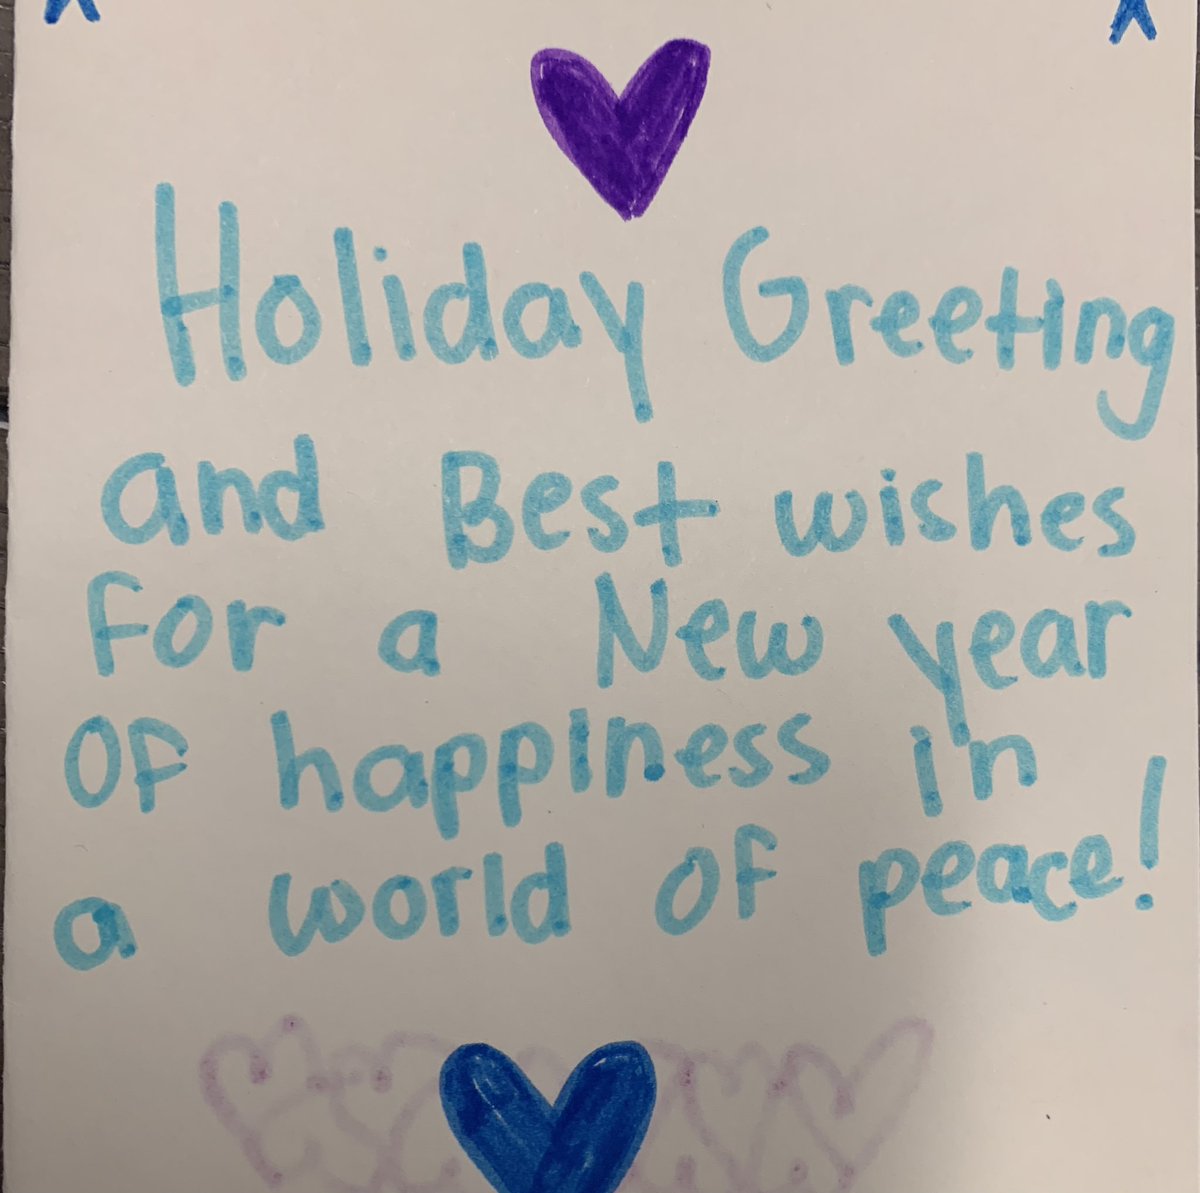 Holiday Greeting
and Best wishes
For a New year
OF happiness in
a world OF peace!